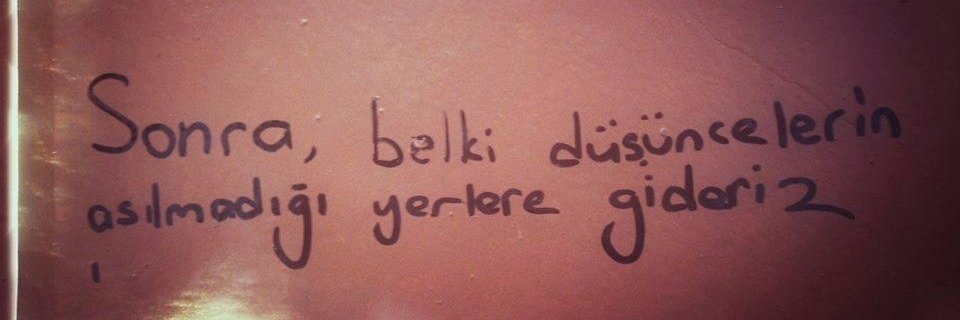 Sonra, belki düşüncelerin
asılmadığı yerlere gideriz